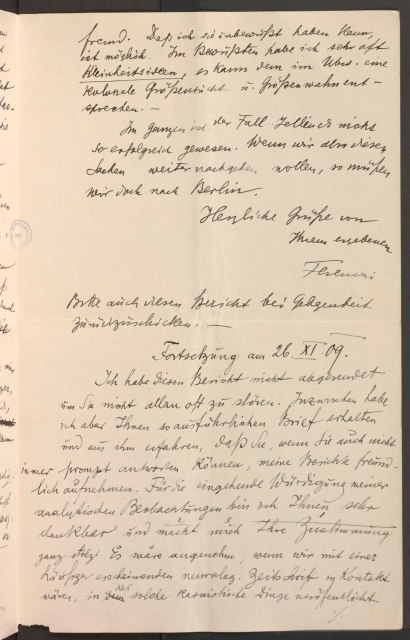 fremd. Daß ich sie unbewußt haben kann,
ist möglich. Im Bewußten habe ich sehr oft
Kleinheitsideen, es kann dem im Ubw. eine
kolossale Größensucht u. Größenwahn ent-
sprechen. —
Im Ganzen ist der Fall Jellinek nicht
so erfolgreich gewesen. Wenn wir also diesen
Sachen weiter nachgehen wollen, so müßen
wir doch nach Berlin.
Herzliche Grüße von
Ihrem ergebenen
Ferenczi
Bitte auch diesen Bericht bei Gelegenheit
zurückzuschicken. —
Fortsetzung am 26. XI. 09.
Ich habe diesen Bericht nicht abgesendet
um Sie nicht allzu oft zu stören. Inzwischen habe
ich aber Ihren so ausführlichen Brief erhalten
und aus ihm erfahren, daß Sie, wenn Sie auch nicht
immer prompt antworten können, meine Berichte freund-
lich aufnehmen. Für die eingehende Würdigung meiner
analytischen Beobachtungen bin ich Ihnen sehr
dankbar und macht mich Ihre Zustimmung
ganz stolz. Es wäre angenehm, wenn wir mit einer
häufiger erscheinenden neurolog. Zeitschrift in Kontakt
wären, in der solche kasuistische Dinge veröffentlicht
./.